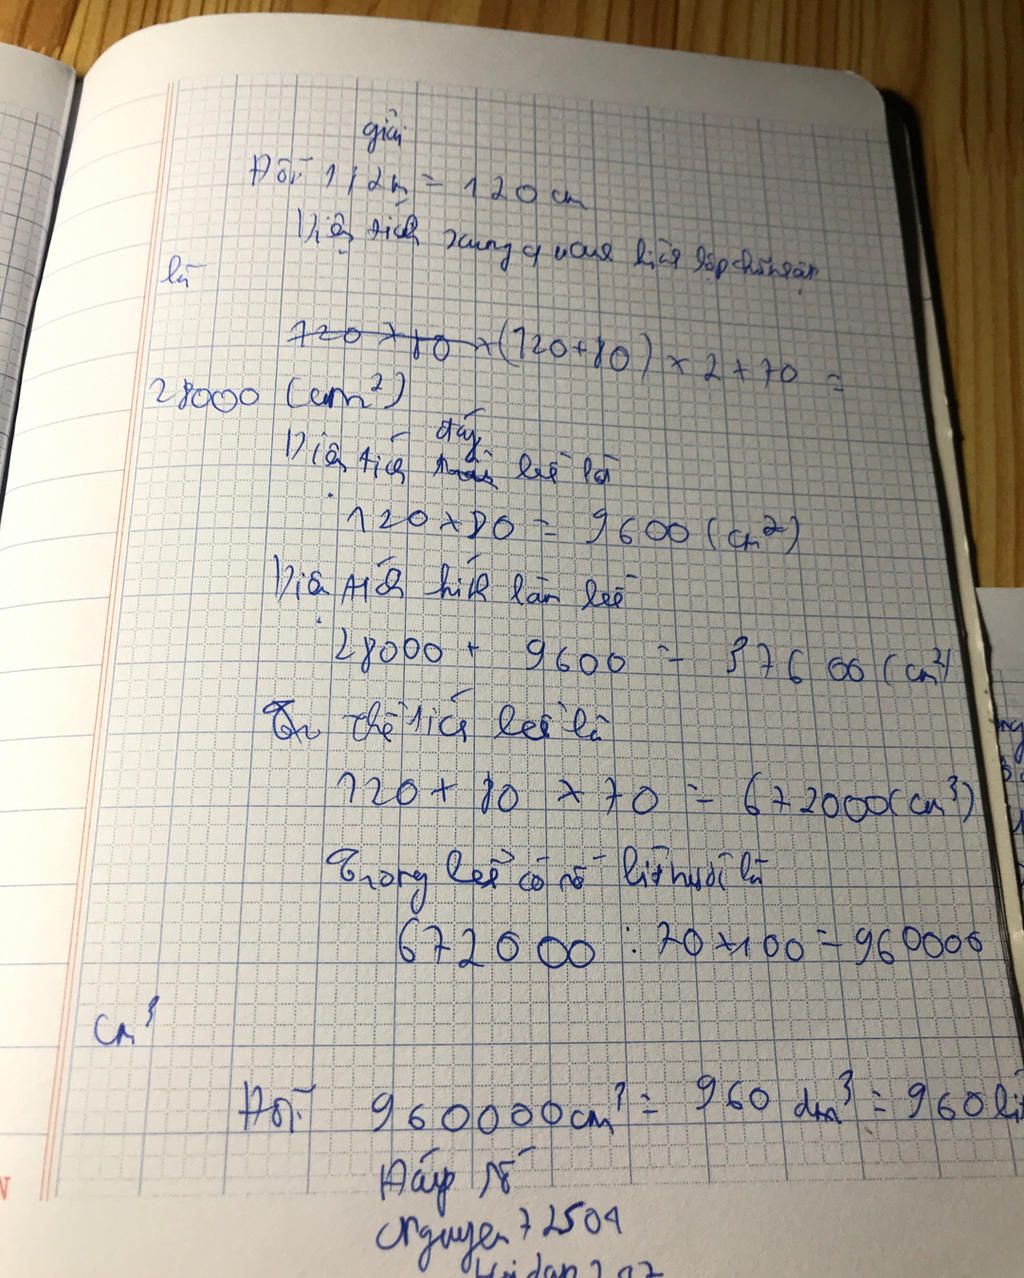 giải
Đổi: 1,2m = 120 cm
Diện tích xung quanh hình hộp chữ nhật
là
120 × 80 × (120+80) × 2 × 70 =
28000 (cm²)
đáy
Diện tích bể là
120 × 80 = 9600 (cm²)
Diện tích kính làm bể
28000 + 9600 = 37600 (cm²)
thể tích bể là
120 × 80 × 70 = 672000 (cm³)
Trong bể có số lít nước là
672000 : 70 × 100 = 960000
cm³
Đổi: 960000cm³ = 960 dm³ = 960 lít
Đáp số
Nguyen 72504